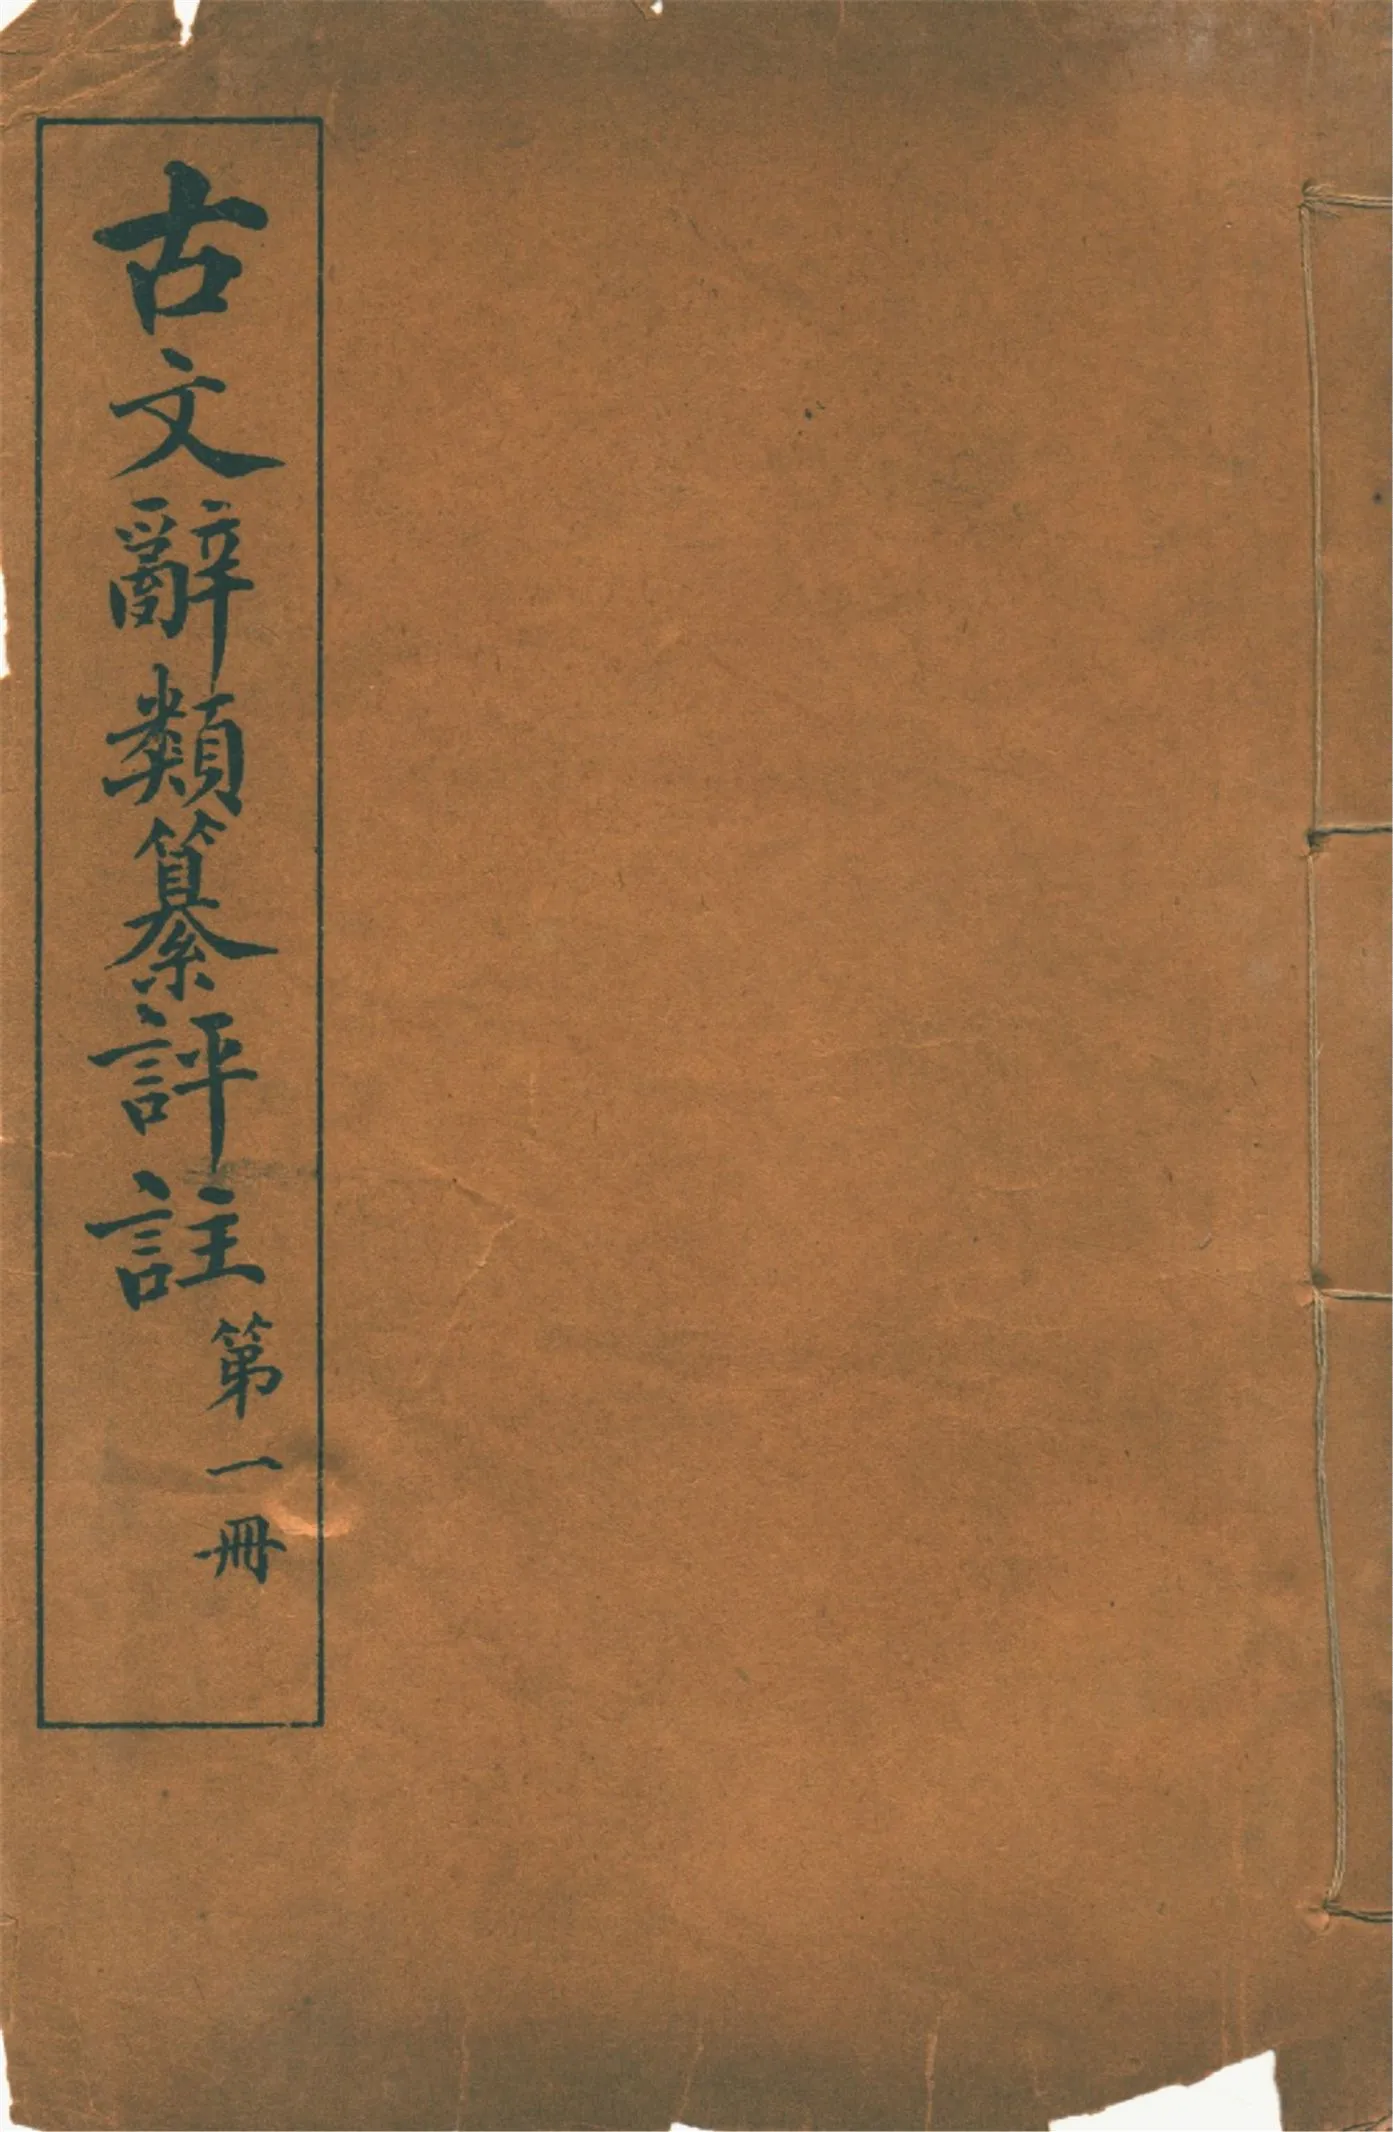 古文辭類纂評註
第一冊